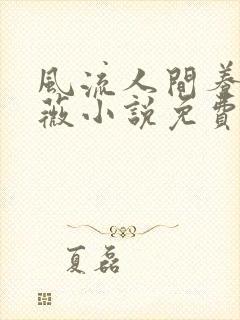 風流人間養
薇小說免費
夏磊